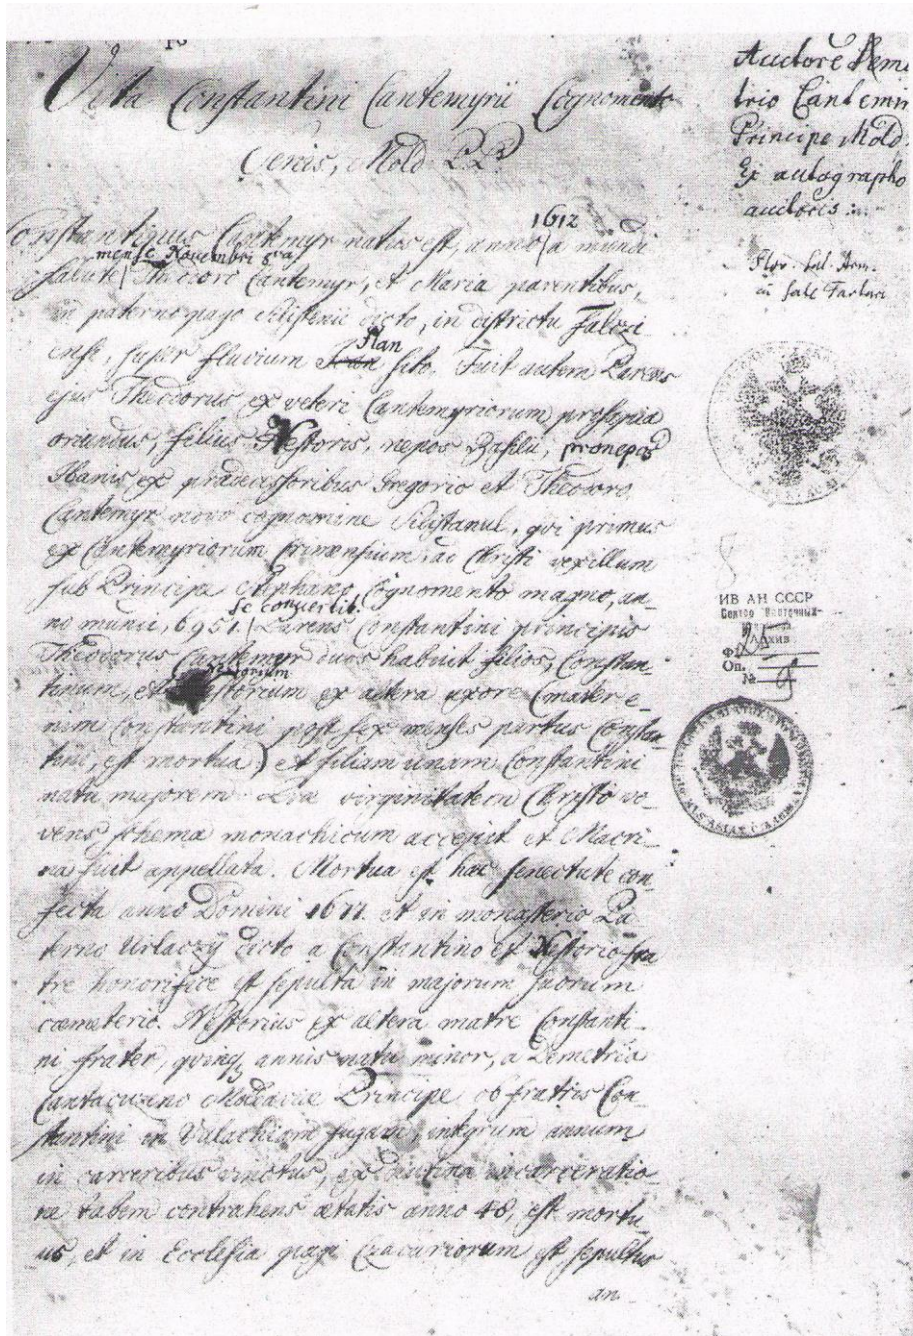 Vita Constantini Cantemyrii Cognomento
Senis, Mold. P.P.
Auctore Deme
trio Cantemir
Principe Mold.
Ex autographo
auctoris
1612
Constantinus Cantemyr natus est, anno a mundi
mense Novembri 8va
salute Theodoro Cantemyr, et Maria parentibus,
in paterno pago Silisteni dicto, in districtu Falczi-
Elan
ensi, super fluvium sito. Fuit autem Parens
ejus Theodorus ex veteri Cantemyriorum prosapia
oriundus, filius Nestoris, nepos Basilii, pronepos
Ioanis ex prædecessoribus Gregorio et Theodoro
Cantemyr novo cognomine Silistanul, qui primus
ex Cantemyriorum Crimensium, ad Christi vexillum
sub Principe Stephano, Cognomento magno, an-
se convertit.
no mundi, 6951. Parens Constantini principis
Theodorus Cantemyr duos habuit filios, Constan-
tinum, et Nestorium ex altera uxore (mater e-
nim Constantini post sex menses partus Constan-
tini, est mortua) et filiam unam Constantini
natu majorem. Quæ virginitatem Christo vo-
vens schema monachicum accepit et Macri-
na fuit appellata. Mortua est hæc senectute con
fecta anno Domini 1677. et in monasterio Pa
terno dicto a Constantino et Nestorio fra
tre honorifice est sepulta in majorum suorum
cœmeterio. Nestorius ex altera matre Constanti-
ni frater, quinq annis natu minor, a Demetrio
Cantacuzeno Moldaviæ Principe ob fratris Con-
stantini in Valachiam fugam, integrum annum
in carceribus vinctus, ex diutina incarceratio-
ne tabem contrahens ætatis anno 48, est mortu-
us, et in Ecclesia pagi est sepultus
an
ИВ АН СССР
Сектор Восточный
Архив
Ф. 25
Оп.
№